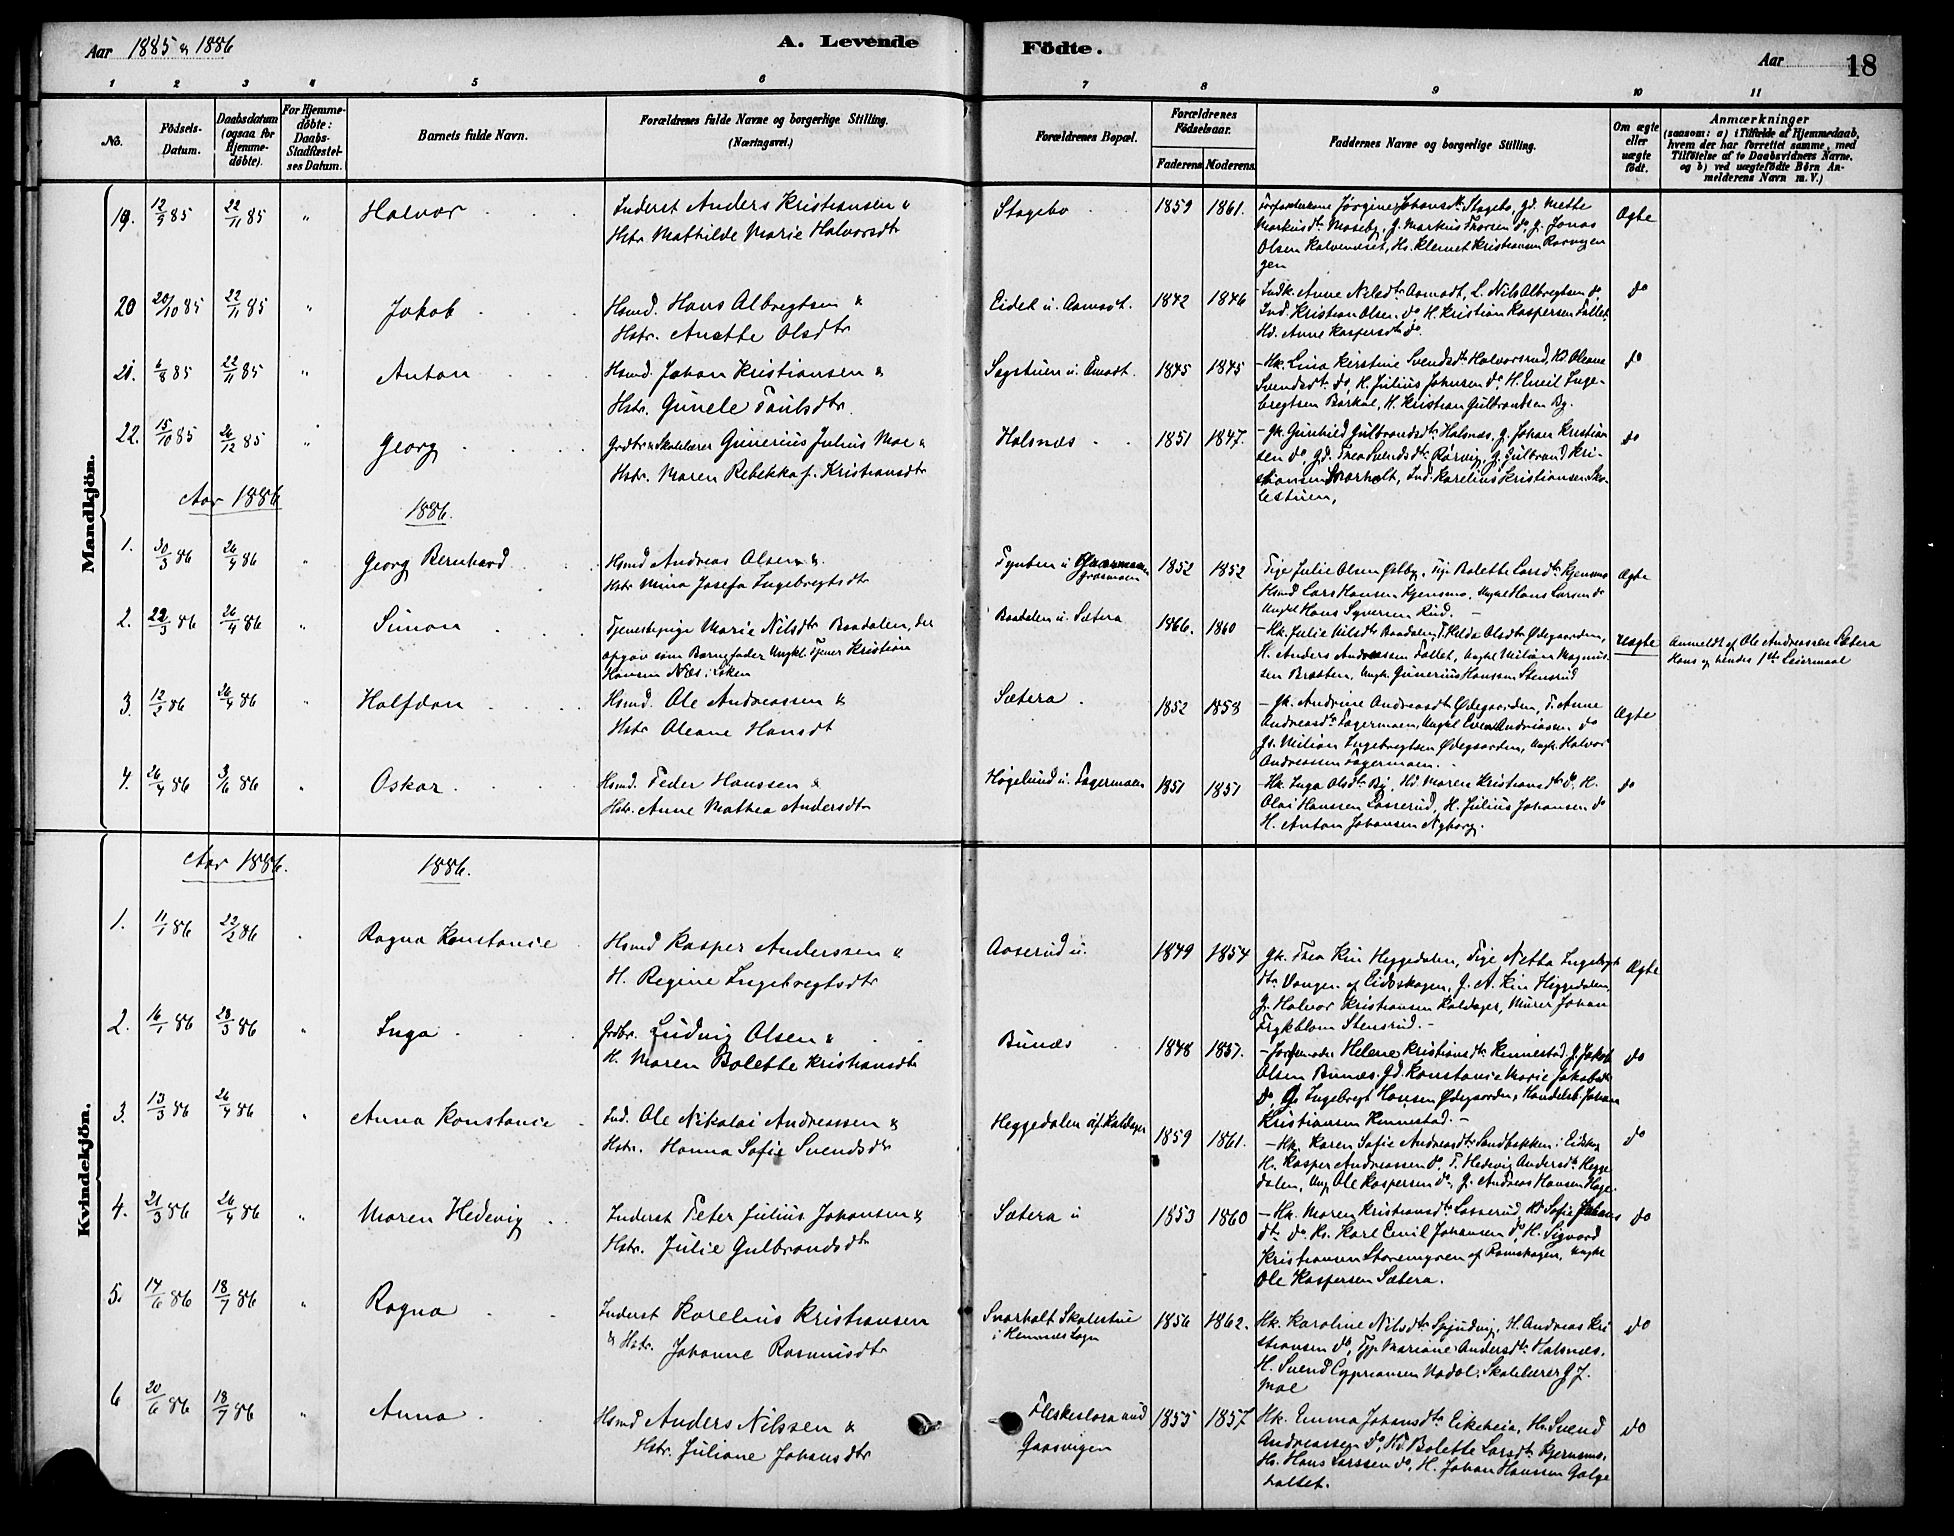 Aar 1885 & 1886
A. Levende Födte.
Aar
18
1 2 3 4 5 6 7 8 9 10 11
No.
Födsels-Datum.
Daabsdatum (ogsaa for Hjemme-döbte).
For Hjemme-döbte: Daabs-Stadfæstel-ses Datum.
Barnets fulde Navn.
Forældrenes fulde Navne og borgerlige Stilling. (Næringsvei.)
Forældrenes Bopæl.
Forældrenes Födselsaar.
Faderens Moderens
Faddernes Navne og borgerlige Stilling.
Om ægte eller uægte födt.
Anmærkninger
(saasom: a) i Tilfælde af Hjemmedaab, hvem der har forrettet samme, med Tilföielse af to Daabsvidners Navne, og b) ved uægtefödte Börn Anmelderens Navn m. V.)
Mandkjön.
19. 12/9 85 22/11 85 " Halvor
Inderst Anders Kristiansen &
Hstr. Mathilde Marie Halvorsdtr
Stagebo 1859 1861.
Jørgine Johansdtr Stagebo, gd. Mette
Markusdtr Moseby, G. Markus Thorsen do G. Jonas
Olsen Kalvenæset, Hs. Klemet Kristiansen
gen
Ægte
20 20/10 85 22/11 85 " Jakob
Hsmd. Hans Albregtsen &
Hstr. Anette Olsdtr
Eidet u. Aamodt. 1842 1846
Indk. Anne Nilsdtr Aamodt, L. Nils Albregtsen do,
Ind. Kristian Olsen do H. Kristian Kaspersen Fallet,
Hd. Anne Kaspersdtr do.
do
21. 6/8 85 22/11 85 " Anton
Hsmd. Johan Kristiansen &
Hstr. Gunele Paulsdtr.
Sagstuen u. Amodt. 1845 1845
- Hk. Lina Kirstine Svendsdtr Halvorsrud, Hd. Oleane
Svendsdtr do, H. Julius Johnsen do, H. Emil Inge-
bregtsen Barkal, H. Kristian Gulbrandsen By.
do
22. 15/10 85 26/12 85 " Georg
Grdbr. & Skolelærer Gunerius Julius Moe &
Hstr. Maren Rebekka f. Kristiansdtr
Halsnæs 1851 1847.
- Gk. Gunhild Gulbrandsdtr Halsnæs, G. Johan Kristian
sen do, gd. Thea Svendsdtr Rørvig, G. Gulbrand Kri-
stiansen Svarholt, Ind. Karelius Kristiansen Sko-
lestuen,
do
Aar 1886 1886.
1. 30/3 86 26/4 86 " Georg Bernhard
Hsmd Andreas Olsen &
Hstr Mina Josefa Ingebregtsdtr
u Grasmoen 1852 1852
Pige Julie Olsen Østby, Pige Bolette Larsdtr Kjensmo
Hsmd Lars Hansen Kjensmo, Ungkl Hans Larsen do
Ungkl Hans Syversen Rud. -
Ægte
2. 22/3 86 26/4 86 " Simon
Tjenestepige Marie Nilsdtr Baadalen, der
opgav som Barnefader Ungkl. Tjener Kristian
Hansen Næs i Eken
Baadalen u. Sætera 1866. 1860
- Hk. Julie Nilsdtr Baadalen, P. Hilda Olsdtr Ødegaarden,
H. Anders Andreassen Fallet, Ungkl Milian Magnus-
sen Braaten, Ungk. Gunerius Hanssen Stensrud
uægte
Anmeldt af Ole Andreassen Sætera
Hans og hendes 1ste Leiermaal
3. 12/2 86 26/4 86 " Halfdan
Hsmd. Ole Andreassen &
Hstr Oleane Hansdt
Sætera 1852 1858
- Gk. Andrine Andreasdtr Ødegaarden, P. Anne
Andreasdtr Lagermoen, Ungkl Even Andreassen do
Gs. Milian Ingebregtsen Ødegaarden, Ungk. Halvor
Andreassen Lagermoen. -
Ægte
4. 26/4 86 3/6 86 " Oskar
Hsmd. Peder Hanssen &
Hstr. Anne Mathea Andersdtr
Høgelund u. Lagermoen 1851 1851
- Hk. Inga Olsdtr By, Hd. Maren Kristiansdtr do, H.
Olai Hanssen Lasserud, H. Julius Johansen do
H. Anton Johansen Nyborg.
do
Kvindekjön.
Aar 1886. 1886.
1. 11/1 86 22/2 86 Ragna Konstanse
Hsmd Kasper Anderssen &
H. Regine Ingebregtsdtr
Aaserud u. 1849 1854
Gk. Thea Heggedalen, Pige Netta Ingebregts
dtr Vangen af Eidsskogen, G. A. Heggedalen,
G. Halvor Kristiansen Kaldager, Murer Johan
Frykblom Stensrud. -
Ægte
2. 16/1 86 28/3 86 " Inga
Grdbr. Ludvig Olsen &
H. Maren Bolette Kristiansdtr
Bunæs 1848 1857.
- Jordemoder Helene Kristiansdtr Kinnestad, G. Jakob
Olsen Bunæs. Gd. Konstanse Marie Jakobsdtr
do, Gs Ingebregt Hansen Ødegaarden, Handelsb. Johan
Kristiansen Kinnestad. -
do
3. 13/3 86 26/4 86 " Anna Konstanse
Ind. Ole Nikolai Andreassen &
Hstr. Hanna Sofie Svendsdtr
Heggedalen af Kaldager 1859 1861.
- Hk. Karen Sofie Andreasdtr Sandbakken i Eidskog
H. Kasper Andreassen do, P. Hedevig Andersdtr Hegge
dalen, Ung. Ole Kaspersen do, G. Andreas Hansen Hage.
do
4. 21/3 86 26/4 86 " Maren Hedevig
Inderst Peter Julius Johansen &
Hstr. Julie Gulbrandsdtr
Sætera u 1853 1860
- Hk. Maren Kristiansdtr Lasserud, Hd Sofie Johans
dtr do Hs. Karl Emil Johansen do, H. Sigvard
Kristiansen Storemyren af Romskogen, Ungkl
Ole Kaspersen Sætera.
do
5. 17/6 86 18/7 86 " Ragna
Inderst Karelius Kristiansen
& Hstr. Johanne Rasmusdtr
Svarholt Skolestue
i Hemnæs Sogn 1856 1862.
Hk. Karoline Nilsdtr Spjudvig, H. Andreas Kri
stiansen do, Pige Mariane Andersdtr Halsnæs,
H. Svend Cyprianssen Nadal, Skolelærer G J.
Moe
do
6 20/6 86 18/7 86 " Anna
Hsmd Anders Nilssen &
Hstr. Juliane Johansdtr
Fleskeslora und
Gaasvigen 1855 1857
Hk. Emma Johansdtr Eikeheia, Hs. Svend
Andreassen do, Hd. Bolette Larsdtr Kjernsmo,
Hs. Hans Larssen do, H. Johan Hansen Galge
haltet.
do